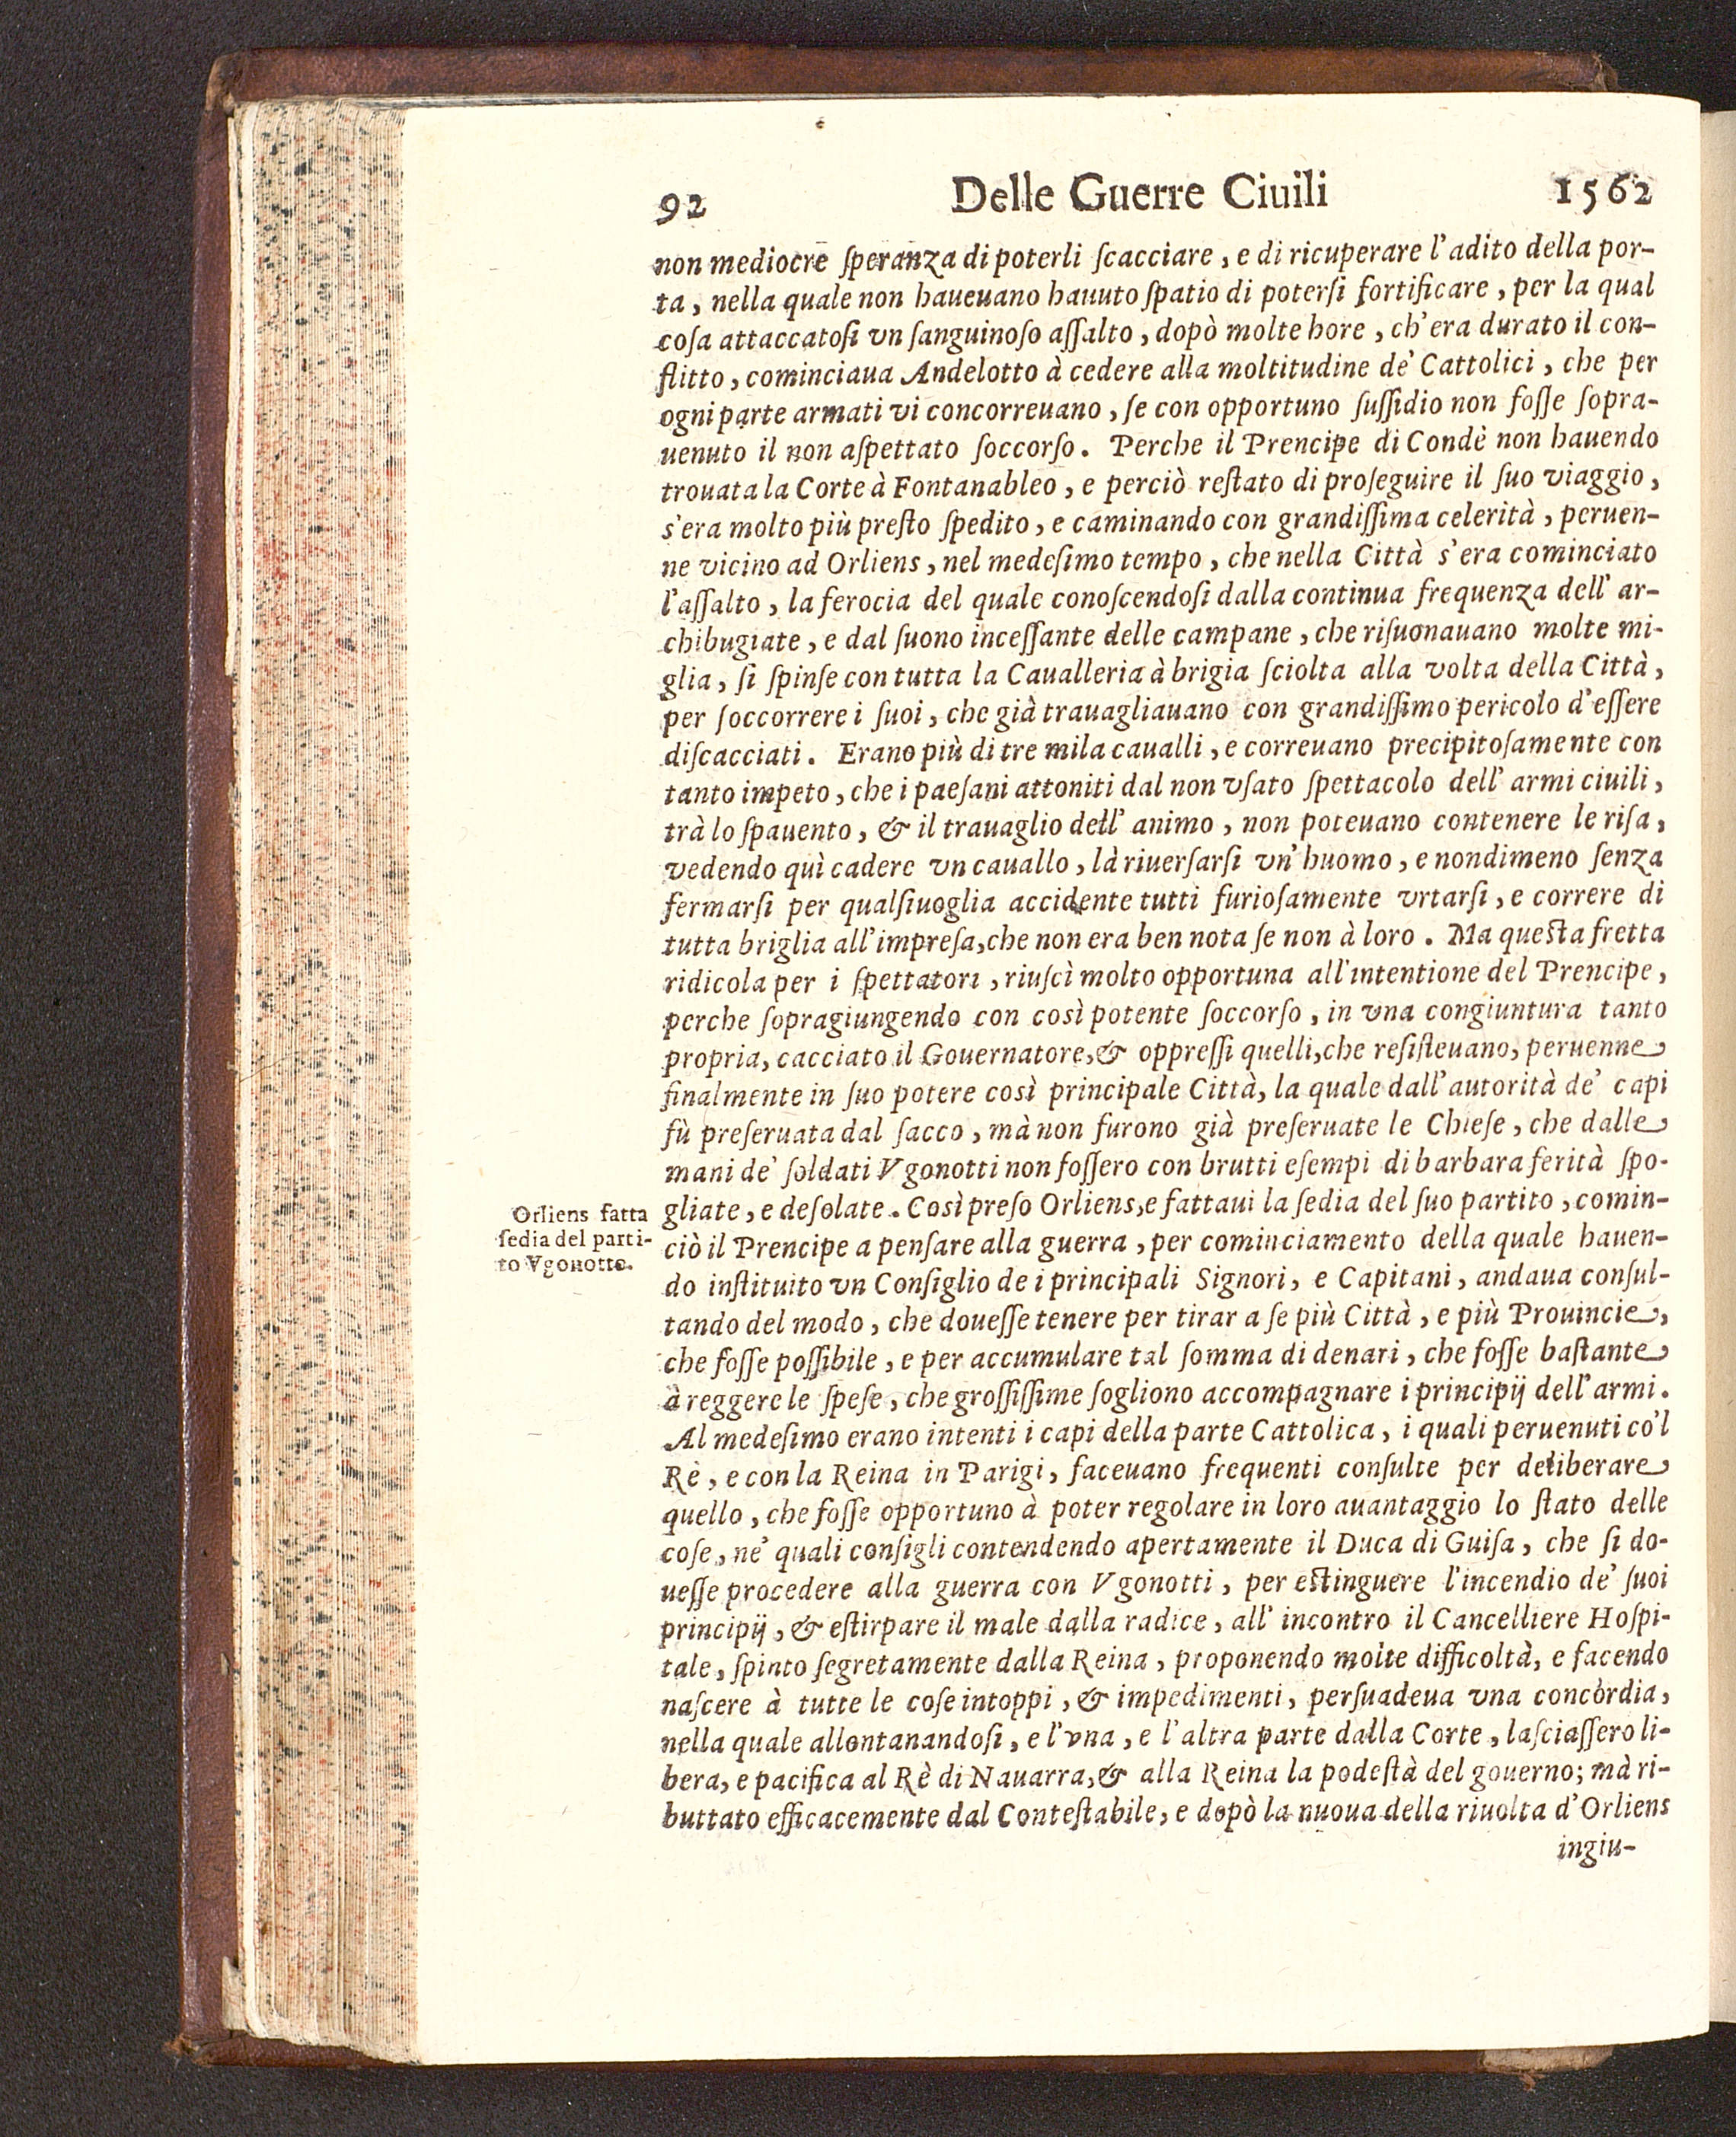 92 Delle Guerre Ciuili 1562
non mediocre ſperanza di poterli ſcacciare, e di ricuperare l'adito della por-
ta, nella quale non haueuano hauuto ſpatio di poterſi fortificare, per la qual
coſa attaccatoſi vn ſanguinoſo aſſalto, dopò molte hore, ch'era durato il con-
flitto, cominciaua Andelotto à cedere alla moltitudine de' Cattolici, che per
ogni parte armati vi concorreuano, ſe con opportuno ſuſſidio non foſſe ſopra-
uenuto il non aſpettato ſoccorſo. Perche il Prencipe di Condè non hauendo
trouata la Corte à Fontanableo, e perciò reſtato di proſeguire il ſuo viaggio,
s'era molto più preſto ſpedito, e caminando con grandiſſima celerità, peruen-
ne vicino ad Orliens, nel medeſimo tempo, che nella Città s'era cominciato
l'aſſalto, la ferocia del quale conoſcendoſi dalla continua frequenza dell'ar-
chibugiate, e dal ſuono inceſſante delle campane, che riſuonauano molte mi-
glia, ſi ſpinſe con tutta la Caualleria à brigia ſciolta alla volta della Città,
per ſoccorrere i ſuoi, che già trauagliauano con grandiſſimo pericolo d'eſſere
diſcacciati. Erano più di tre mila caualli, e correuano precipitoſamente con
tanto impeto, che i paeſani attoniti dal non vſato ſpettacolo dell'armi ciuili,
trà lo ſpauento, & il trauaglio dell'animo, non poteuano contenere le riſa,
vedendo quì cadere vn cauallo, là riuerſarſi vn'huomo, e nondimeno ſenza
fermarſi per qualſiuoglia accidente tutti furioſamente vrtarſi, e correre di
tutta briglia all'impreſa, che non era ben nota ſe non à loro. Ma queſta fretta
ridicola per i ſpettatori, riuſcì molto opportuna all'intentione del Prencipe,
perche ſopragiungendo con così potente ſoccorſo, in vna congiuntura tanto
propria, cacciato il Gouernatore, & oppreſſi quelli, che reſiſteuano, peruenne
finalmente in ſuo potere così principale Città, la quale dall'autorità de' capi
fù preſeruata dal ſacco, mà non furono già preſeruate le Chieſe, che dalle
mani de' ſoldati Vgonotti non foſſero con brutti eſempi di barbara ferità ſpo-
gliate, e deſolate. Così preſo Orliens, e fattaui la ſedia del ſuo partito, comin-
ciò il Prencipe a penſare alla guerra, per cominciamento della quale hauen-
do inſtituito vn Conſiglio de i principali Signori, e Capitani, andaua conſul-
tando del modo, che doueſſe tenere per tirar a ſe più Città, e più Prouincie,
che foſſe poſſibile, e per accumulare tal ſomma di denari, che foſſe baſtante
à reggere le ſpeſe, che groſſiſſime ſogliono accompagnare i principij dell'armi.
Al medeſimo erano intenti i capi della parte Cattolica, i quali peruenuti co'l
Rè, e con la Reina in Parigi, faceuano frequenti conſulte per deliberare
quello, che foſſe opportuno à poter regolare in loro auantaggio lo ſtato delle
coſe, ne' quali conſigli contendendo apertamente il Duca di Guiſa, che ſi do-
ueſſe procedere alla guerra con Vgonotti, per eſtinguere l'incendio de' ſuoi
principij, & eſtirpare il male dalla radice, all'incontro il Cancelliere Hoſpi-
tale, ſpinto ſegretamente dalla Reina, proponendo molte difficoltà, e facendo
naſcere à tutte le coſe intoppi, & impedimenti, perſuadeua vna concòrdia,
nella quale allontanandoſi, e l'vna, e l'altra parte dalla Corte, laſciaſſero li-
bera, e pacifica al Rè di Nauarra, & alla Reina la podeſtà del gouerno; mà ri-
buttato efficacemente dal Conteſtabile, e dopò la nuoua della riuolta d'Orliens
ingiu-
Orliens fatta
ſedia del parti-
to Vgonotto.